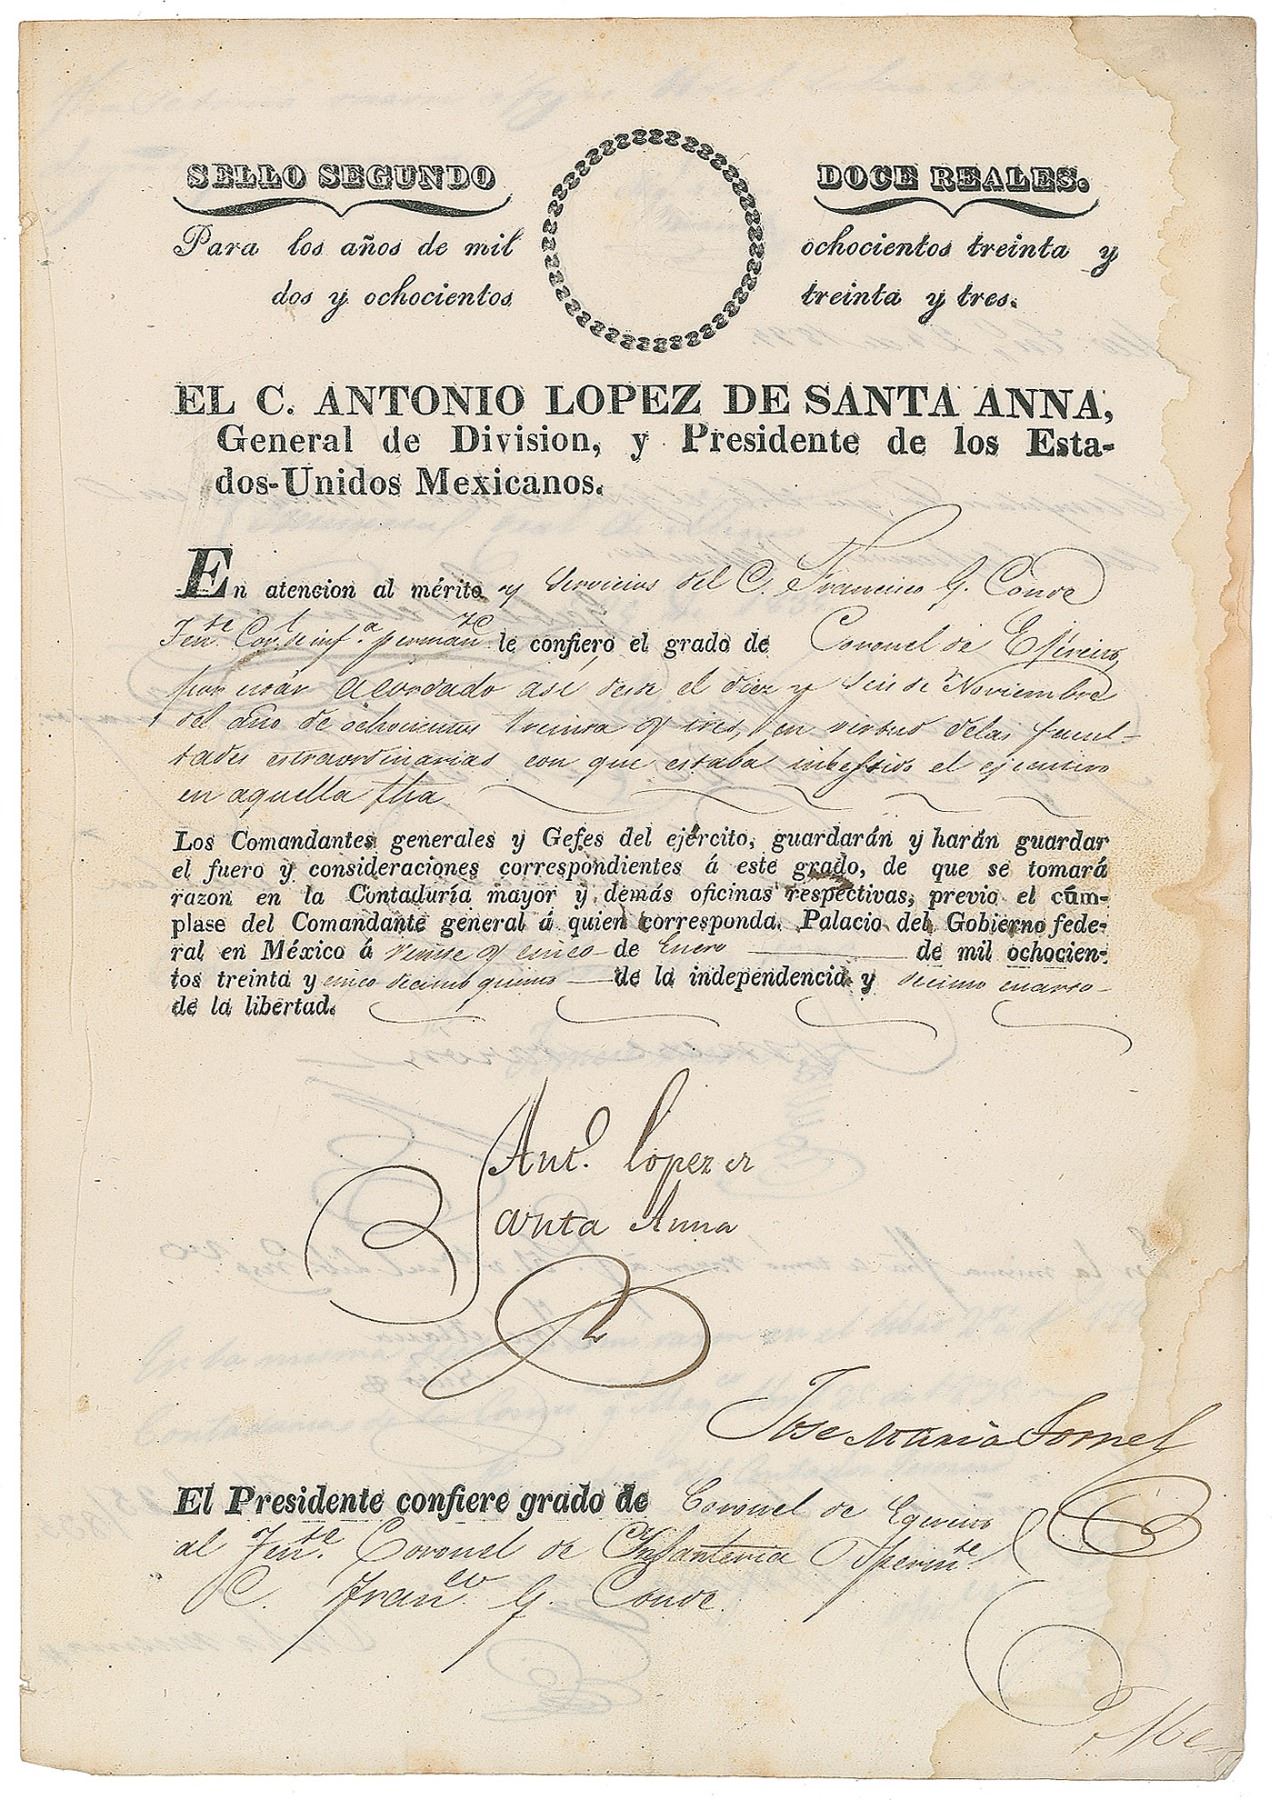 SELLO SEGUNDO DOCE REALES.
Para los años de mil ochocientos treinta y
dos y ochocientos treinta y tres.
EL C. ANTONIO LOPEZ DE SANTA ANNA,
General de Division, y Presidente de los Esta-
dos-Unidos Mexicanos.
En atencion al mérito y servicios del C. Francisco G. Conde
Tente. Corl. de infa. permante. le confiero el grado de Coronel de Ejército
por estár acordado asi desde el diez y seis de Noviembre
del año de ochocientos treinta y tres, en virtud de las facul-
tades estraordinarias con que estaba investido el ejecutivo
en aquella fha.
Los Comandantes generales y Gefes del ejército, guardarán y harán guardar
el fuero y consideraciones correspondientes á este grado, de que se tomará
razon en la Contaduría mayor y demás oficinas respectivas, previo el cúm-
plase del Comandante general á quien corresponda. Palacio del Gobierno fede-
ral en México á veinte y cinco de Enero de mil ochocien-
tos treinta y cinco decimo quinto de la independencia y decimo cuarto
de la libertad.
Anto. Lopez de
Santa Anna
Jose Maria Tornel
El Presidente confiere grado de Coronel de Egercito
al Tente. Coronel de Infanteria Permte.
C. Franco. G. Conde.